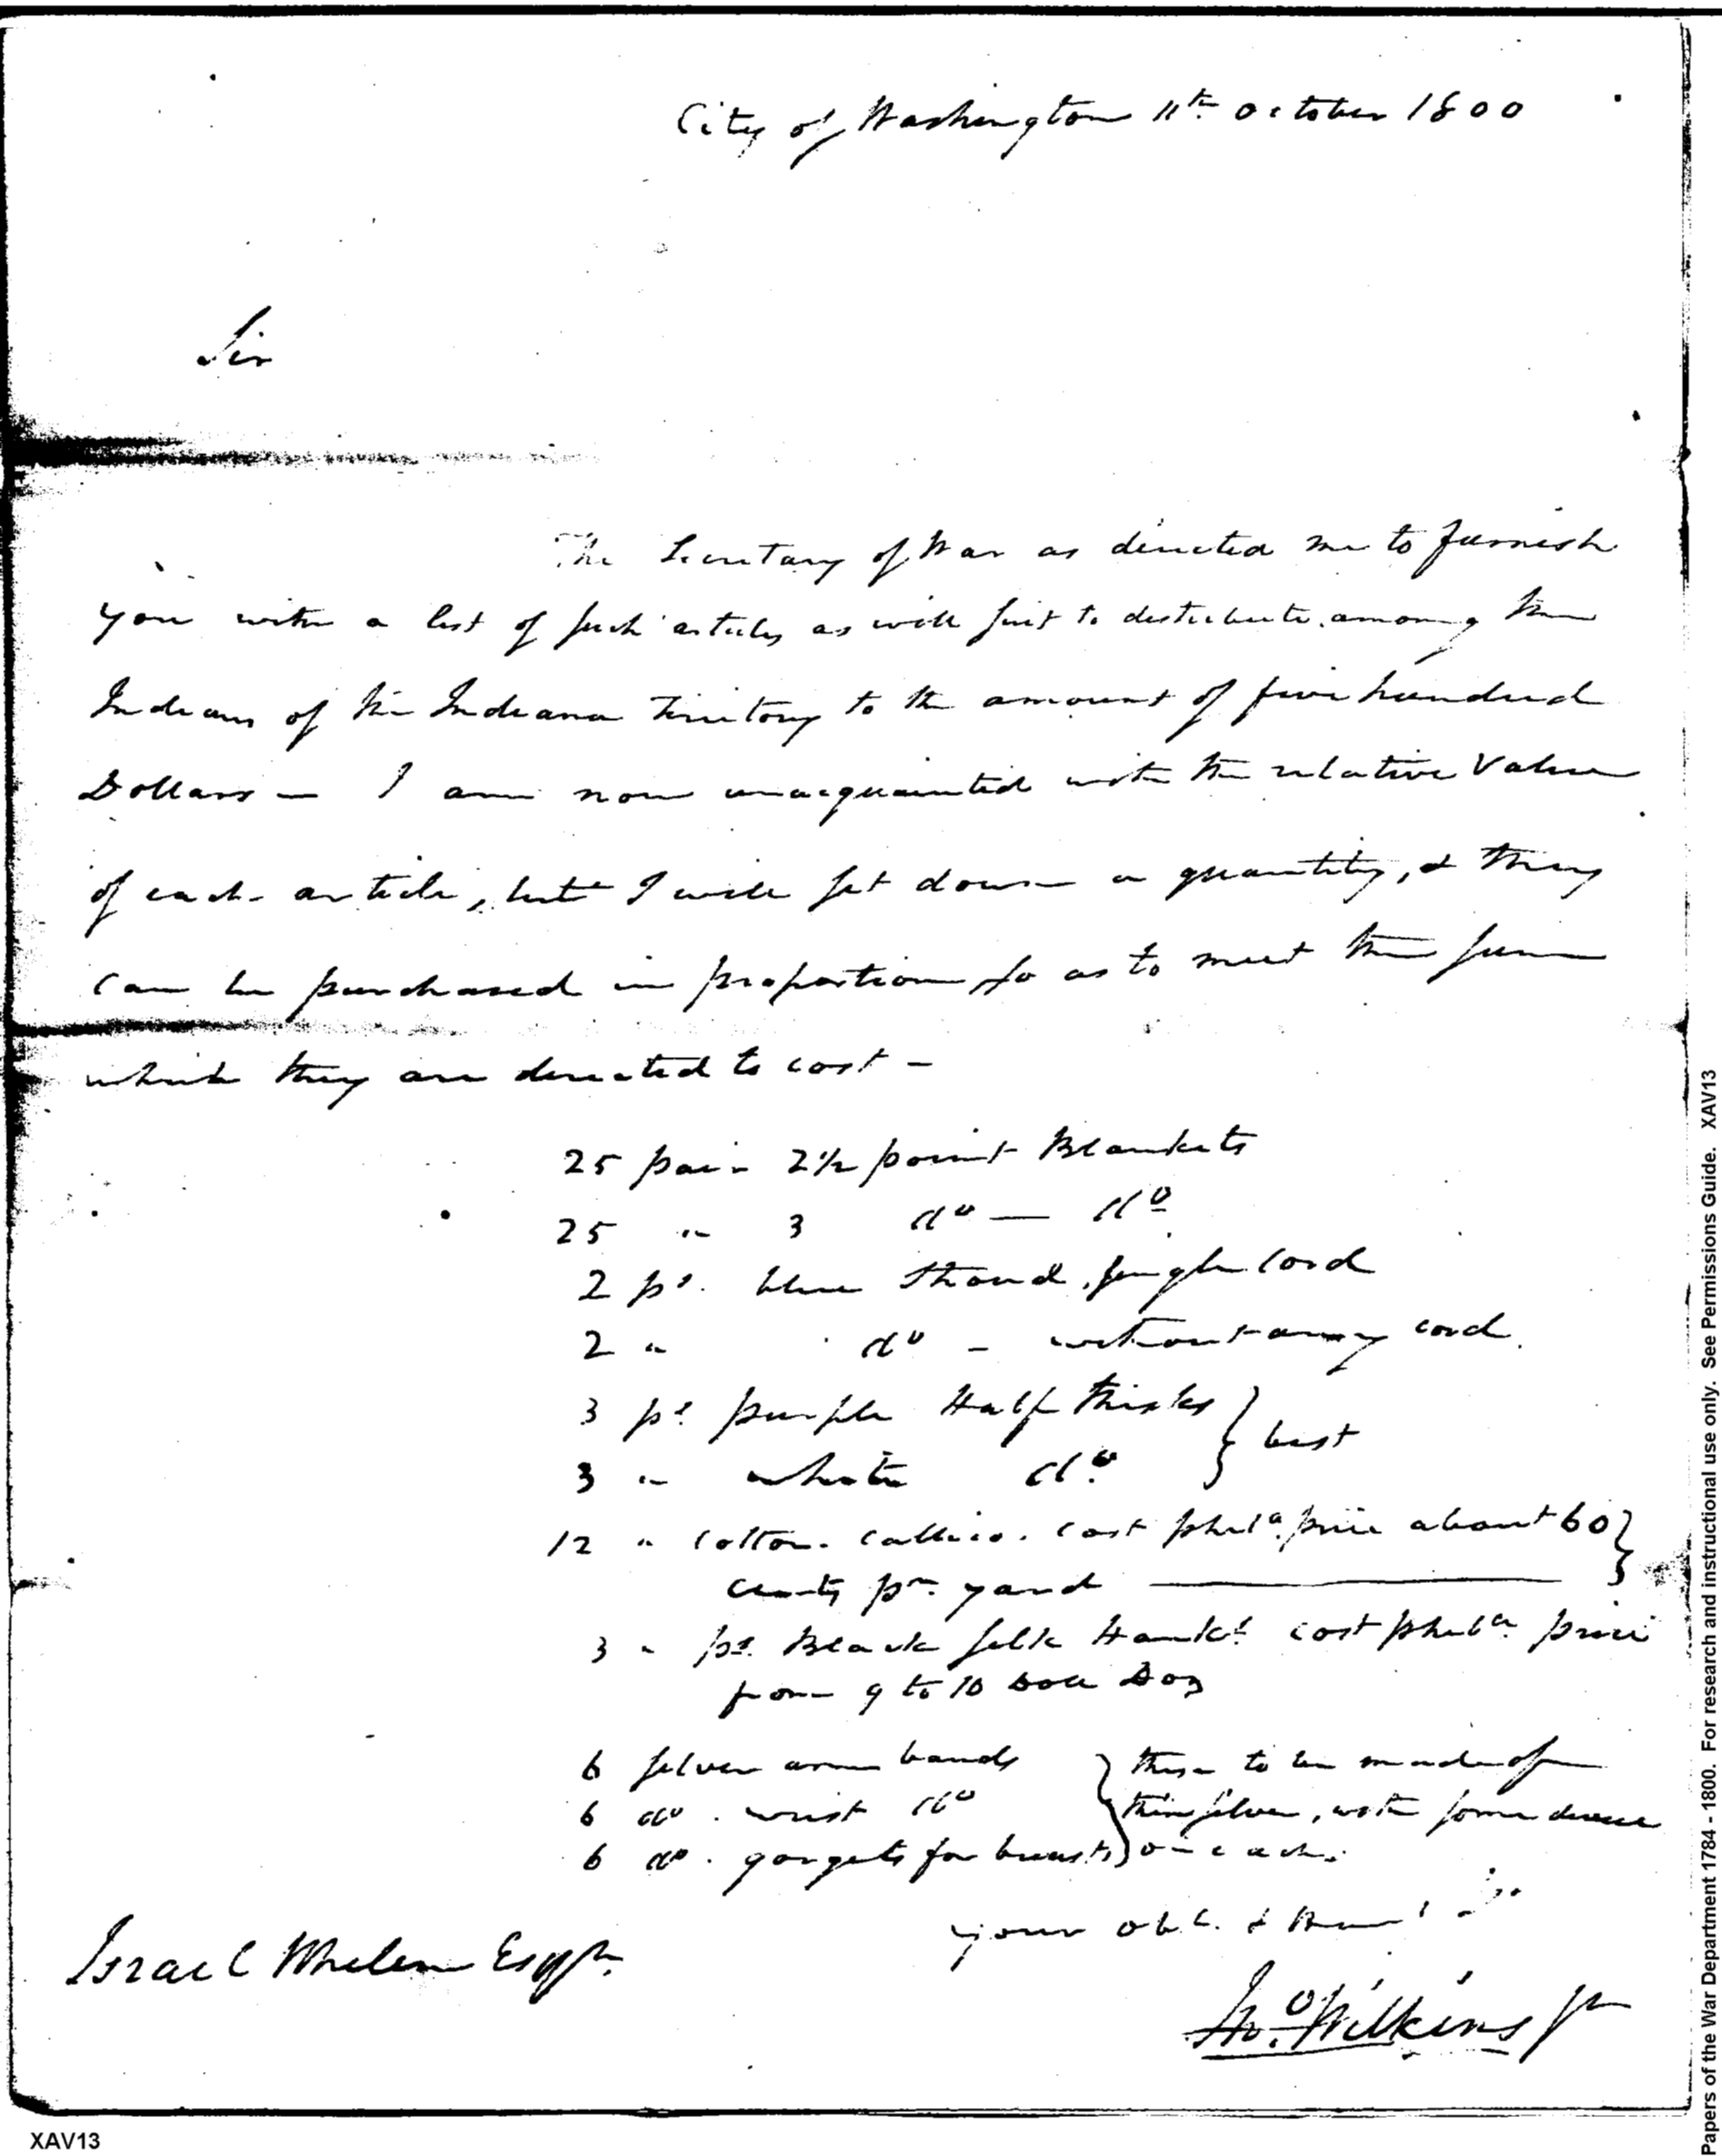 City of Washington 11th October 1800
Sir
The Secretary of War as directed me to furnish
you with a list of such articles as will suit to distribute among the
Indians of the Indiana Territory to the amount of five hundred
Dollars — I am now unacquainted with the relative Value
of each article, but I will set down a quantity, & they
can be purchased in proportion so as to meet the sum
which they are directed to cost —
25 pair 2½ point Blankets
25 " 3 do — do
2 ps. blue Stroud, single cord
2 " do - without any cord.
3 ps purple Half thicks } best
3 " white do
12 " Cotton Callico. cost phila price about 60 }
cents pr. yard ———
3 " ps. Black silk Hankfs cost phila price
from 9 to 10 Doll Doz
6 silver arm bands } these to be made of
6 do. wrist do } thin silver, with some device
6 do. gorgets for breasts } on each.
your obt. &
Israel Whelen Esqr.
Jno. Wilkins Jr
Papers of the War Department 1784 - 1800. For research and instructional use only. See Permissions Guide. XAV13
XAV13